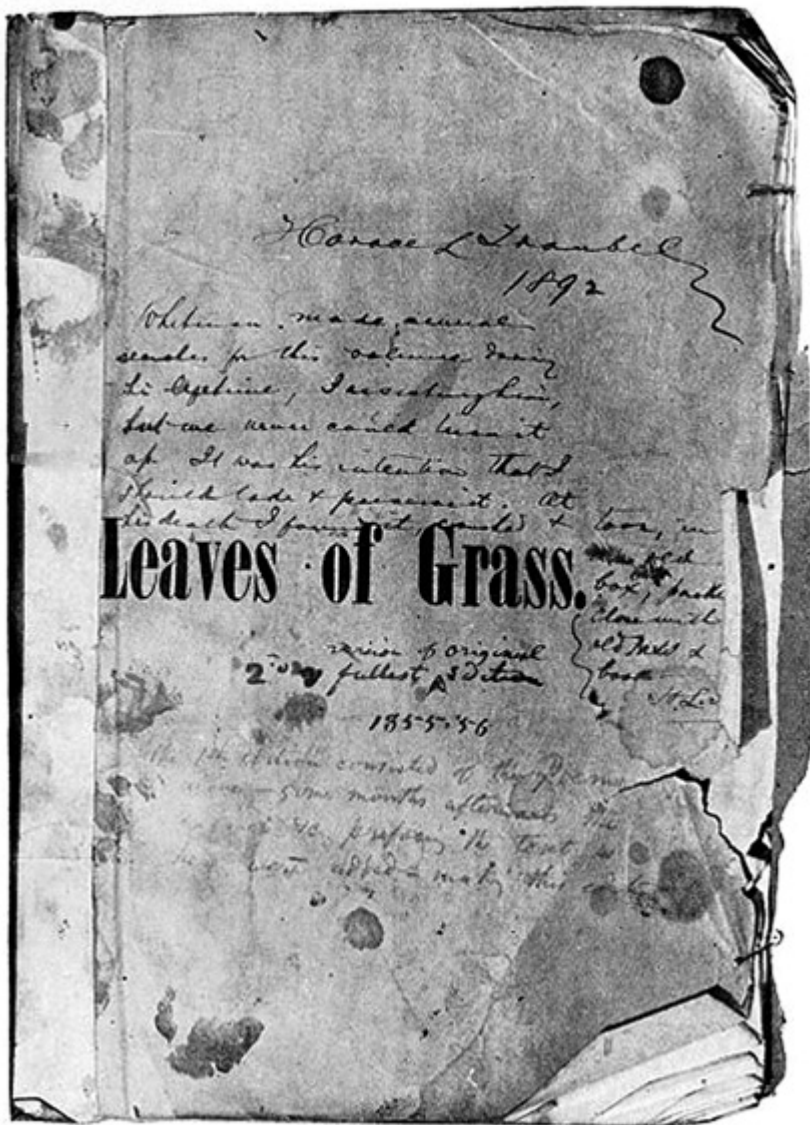 Horace L Traubel
1892
Whitman made several
searches for this volume during
his lifetime, I assisting him,
but we never could turn it
up. It was his intention that I
should take & preserve it. At
his death I found it, & torn, in
an old
box,
close with
old &
books
Leaves of Grass.
version of original
2nd & fullest Edition
1855-'56
The 1st edition consisted of the poems
alone - some months afterwards the
&c. prefacing the text
were added making this